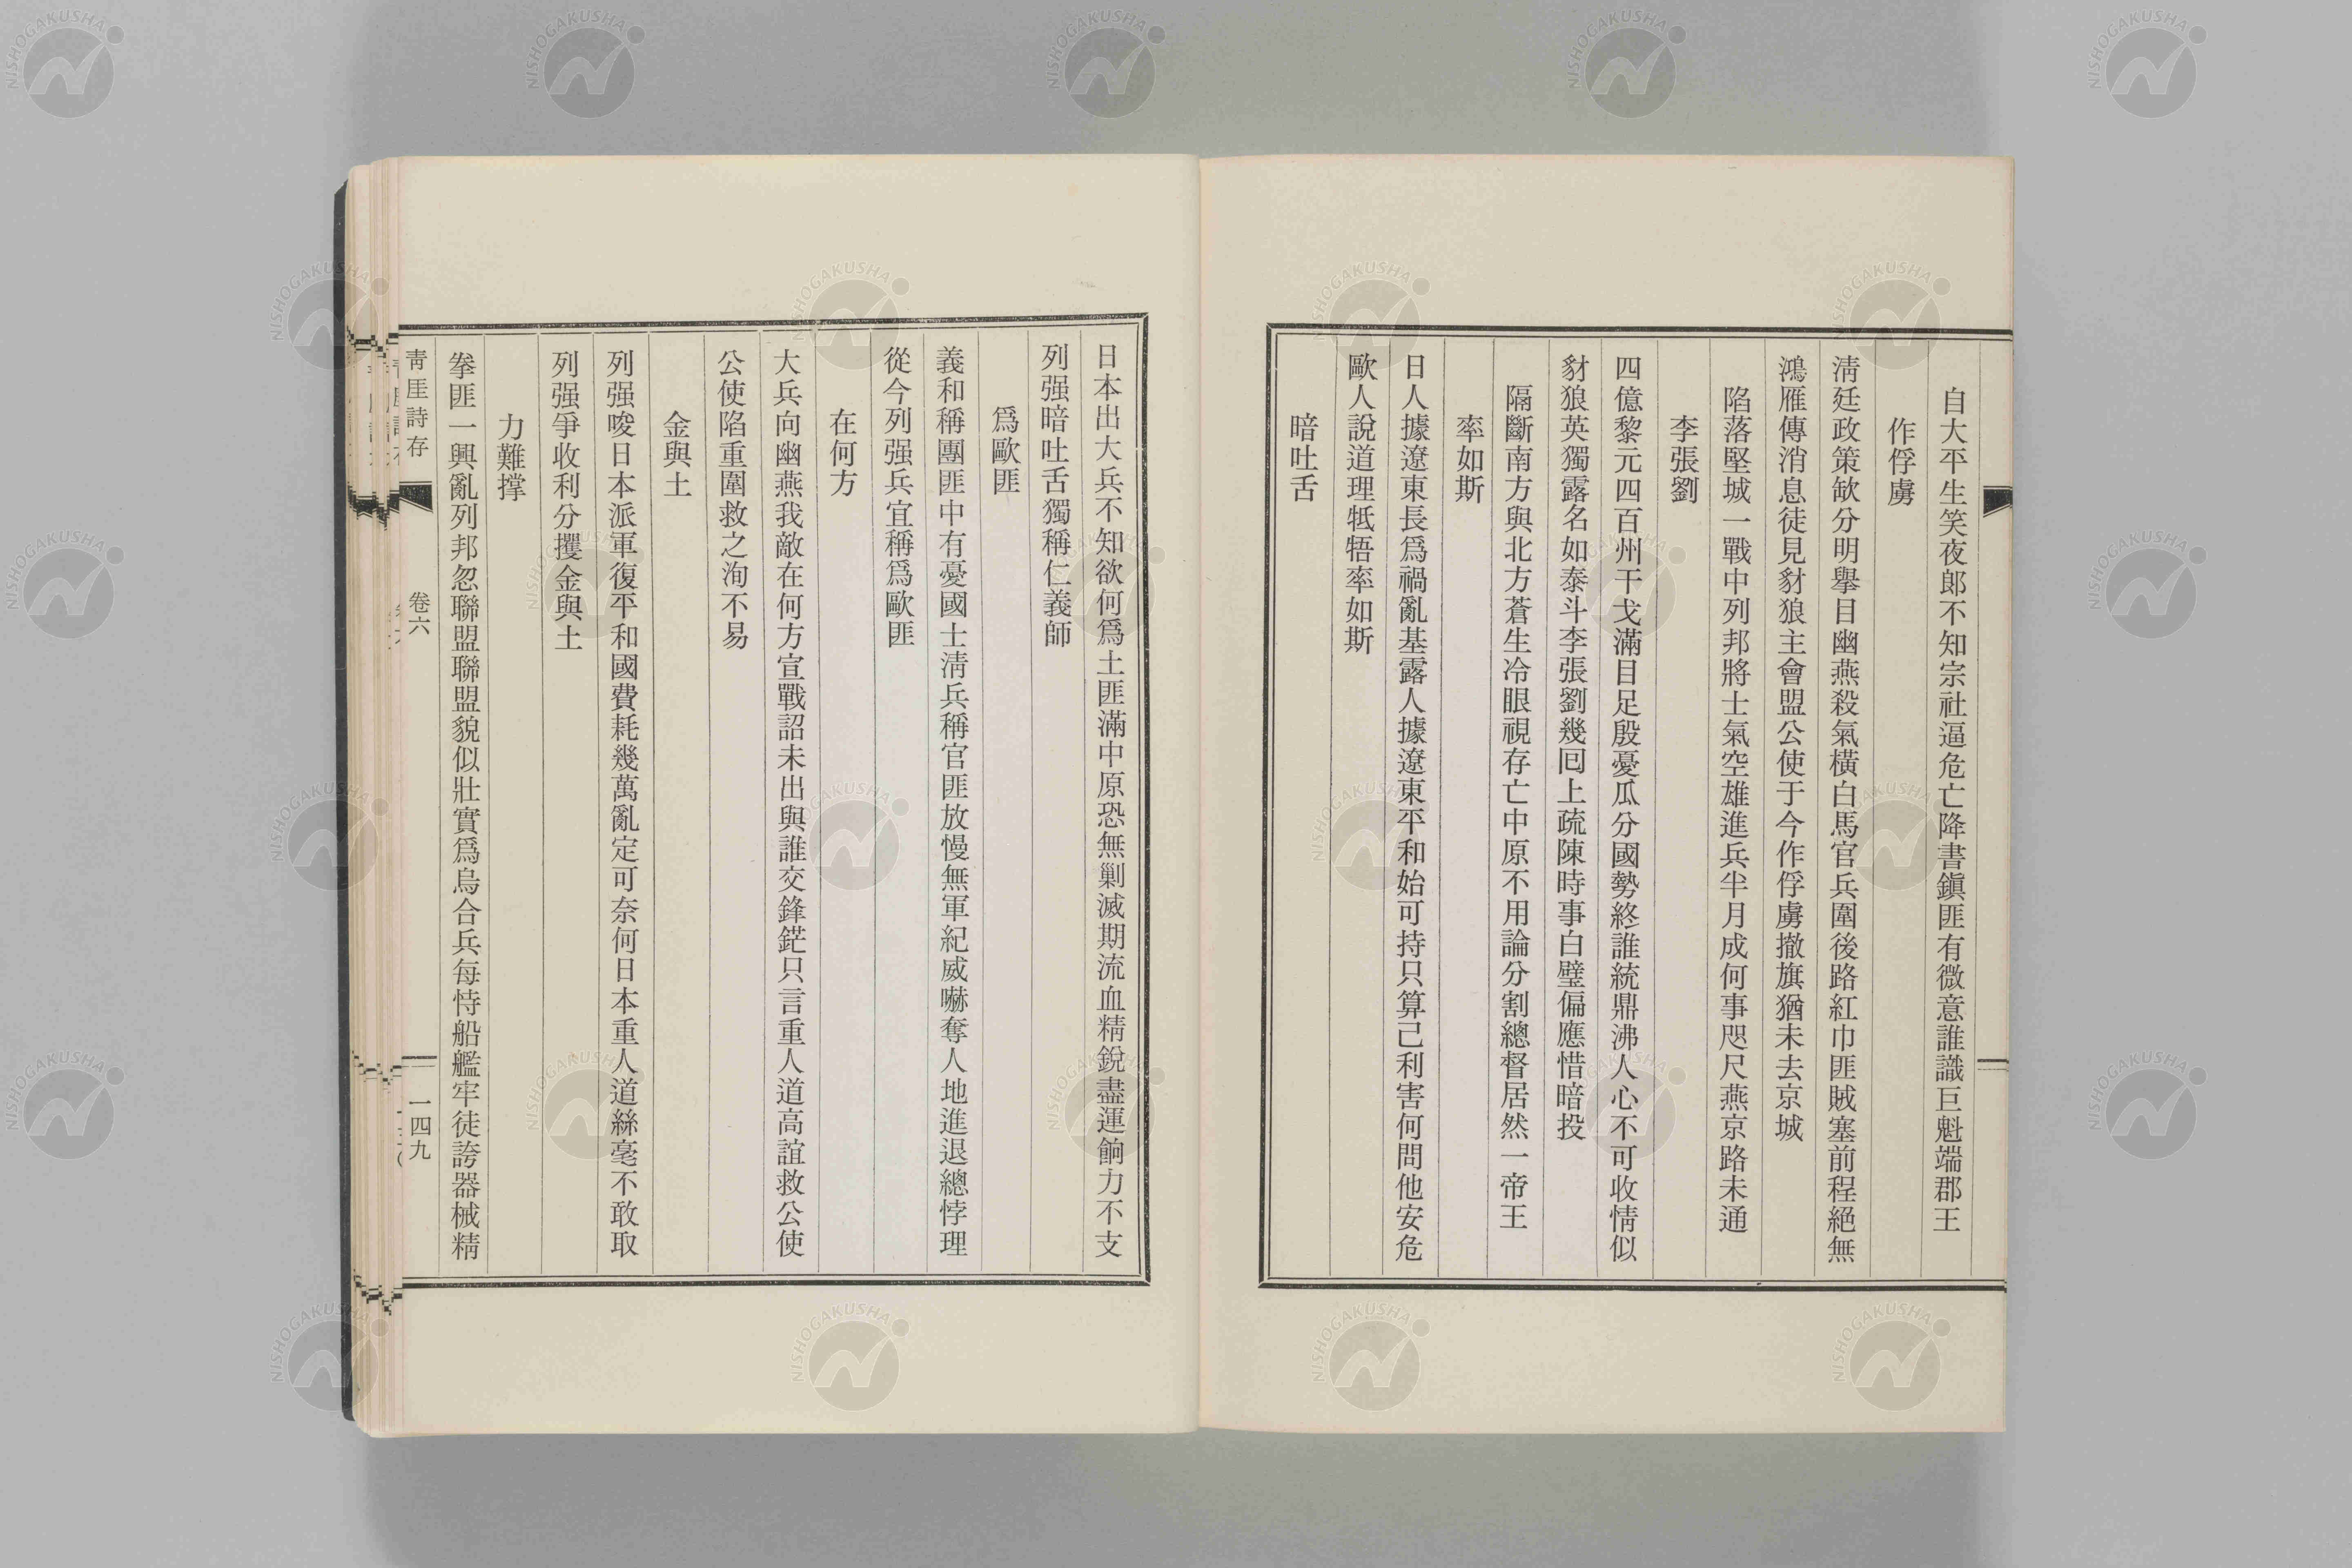 自大平生笑夜郎不知宗社逼危亡降書鎭匪有微意誰識巨魁端郡王
作俘虜
淸廷政策缼分明擧目幽燕殺氣橫白馬官兵圍後路紅巾匪賊塞前程絕無
鴻雁傳消息徒見豺狼主會盟公使于今作俘虜撤旗猶未去京城
陷落堅城一戰中列邦將士氣空雄進兵半月成何事咫尺燕京路未通
李張劉
四億黎元四百州干戈滿目足殷憂瓜分國勢終誰統鼎沸人心不可收情似
豺狼英獨露名如泰斗李張劉幾囘上疏陳時事白璧偏應惜暗投
隔斷南方與北方蒼生冷眼視存亡中原不用論分割總督居然一帝王
率如斯
日人據遼東長爲禍亂基露人據遼東平和始可持只算己利害何問他安危
歐人說道理牴牾率如斯
暗吐舌
日本出大兵不知欲何爲土匪滿中原恐無剿滅期流血精銳盡運餉力不支
列强暗吐舌獨稱仁義師
爲歐匪
義和稱團匪中有憂國士淸兵稱官匪放慢無軍紀威嚇奪人地進退總悖理
從今列强兵宜稱爲歐匪
在何方
大兵向幽燕我敵在何方宣戰詔未出與誰交鋒鋩只言重人道高誼救公使
公使陷重圍救之洵不易
金與土
列强唆日本派軍復平和國費耗幾萬亂定可奈何日本重人道絲毫不敢取
列强爭收利分攫金與土
力難撑
拳匪一興亂列邦忽聯盟聯盟貌似壯實爲烏合兵每恃船艦牢徒誇器械精
靑厓詩存
卷六
一四九
NISHOGAKUSHA